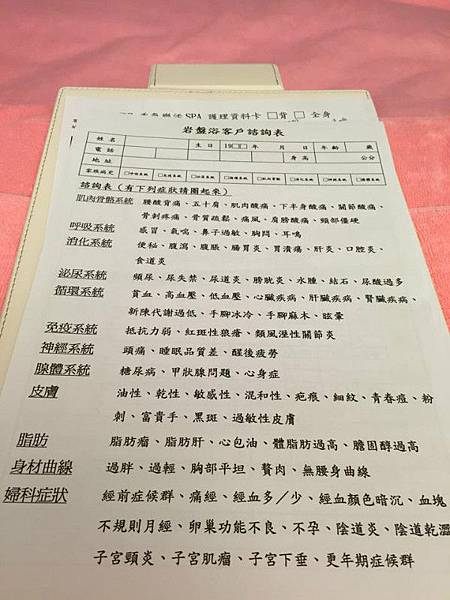 SPA 護理資料卡 □背 □全身
岩盤浴客戶諮詢表
姓名 生日 19□□年 月 日 年齡 歲
電話
地址 身高 公分
家族病史
諮詢表(有下列症狀請圈起來)
肌肉骨骼系統 腰酸背痛、五十肩、肌肉酸痛、下半身酸痛、關節酸痛、
背刺疼痛、骨質疏鬆、痛風、肩膀酸痛、頸部僵硬
呼吸系統 感冒、氣喘、鼻子過敏、胸悶、耳鳴
消化系統 便秘、腹瀉、腹脹、腸胃炎、胃潰瘍、肝炎、口腔炎、
食道炎
泌尿系統 頻尿、尿失禁、尿道炎、膀胱炎、水腫、結石、尿酸過多
循環系統 貧血、高血壓、低血壓、心臟疾病、肝臟疾病、腎臟疾病、
新陳代謝過低、手腳冰冷、手腳麻木、眩暈
免疫系統 抵抗力弱、紅斑性狼瘡、類風溼性關節炎
神經系統 頭痛、睡眠品質差、醒後疲勞
腺體系統 糖尿病、甲狀腺問題、心身症
皮膚 油性、乾性、敏感性、混和性、疤痕、細紋、青春痘、粉
刺、富貴手、黑斑、過敏性皮膚
脂肪 脂肪瘤、脂肪肝、心包油、體脂肪過高、膽固醇過高
身材曲線 過胖、過輕、胸部平坦、贅肉、無腰身曲線
婦科症狀 經前症候群、痛經、經血多/少、經血顏色暗沉、血塊
不規則月經、卵巢功能不良、不孕、陰道炎、陰道乾澀
子宮頸炎、子宮肌瘤、子宮下垂、更年期症候群